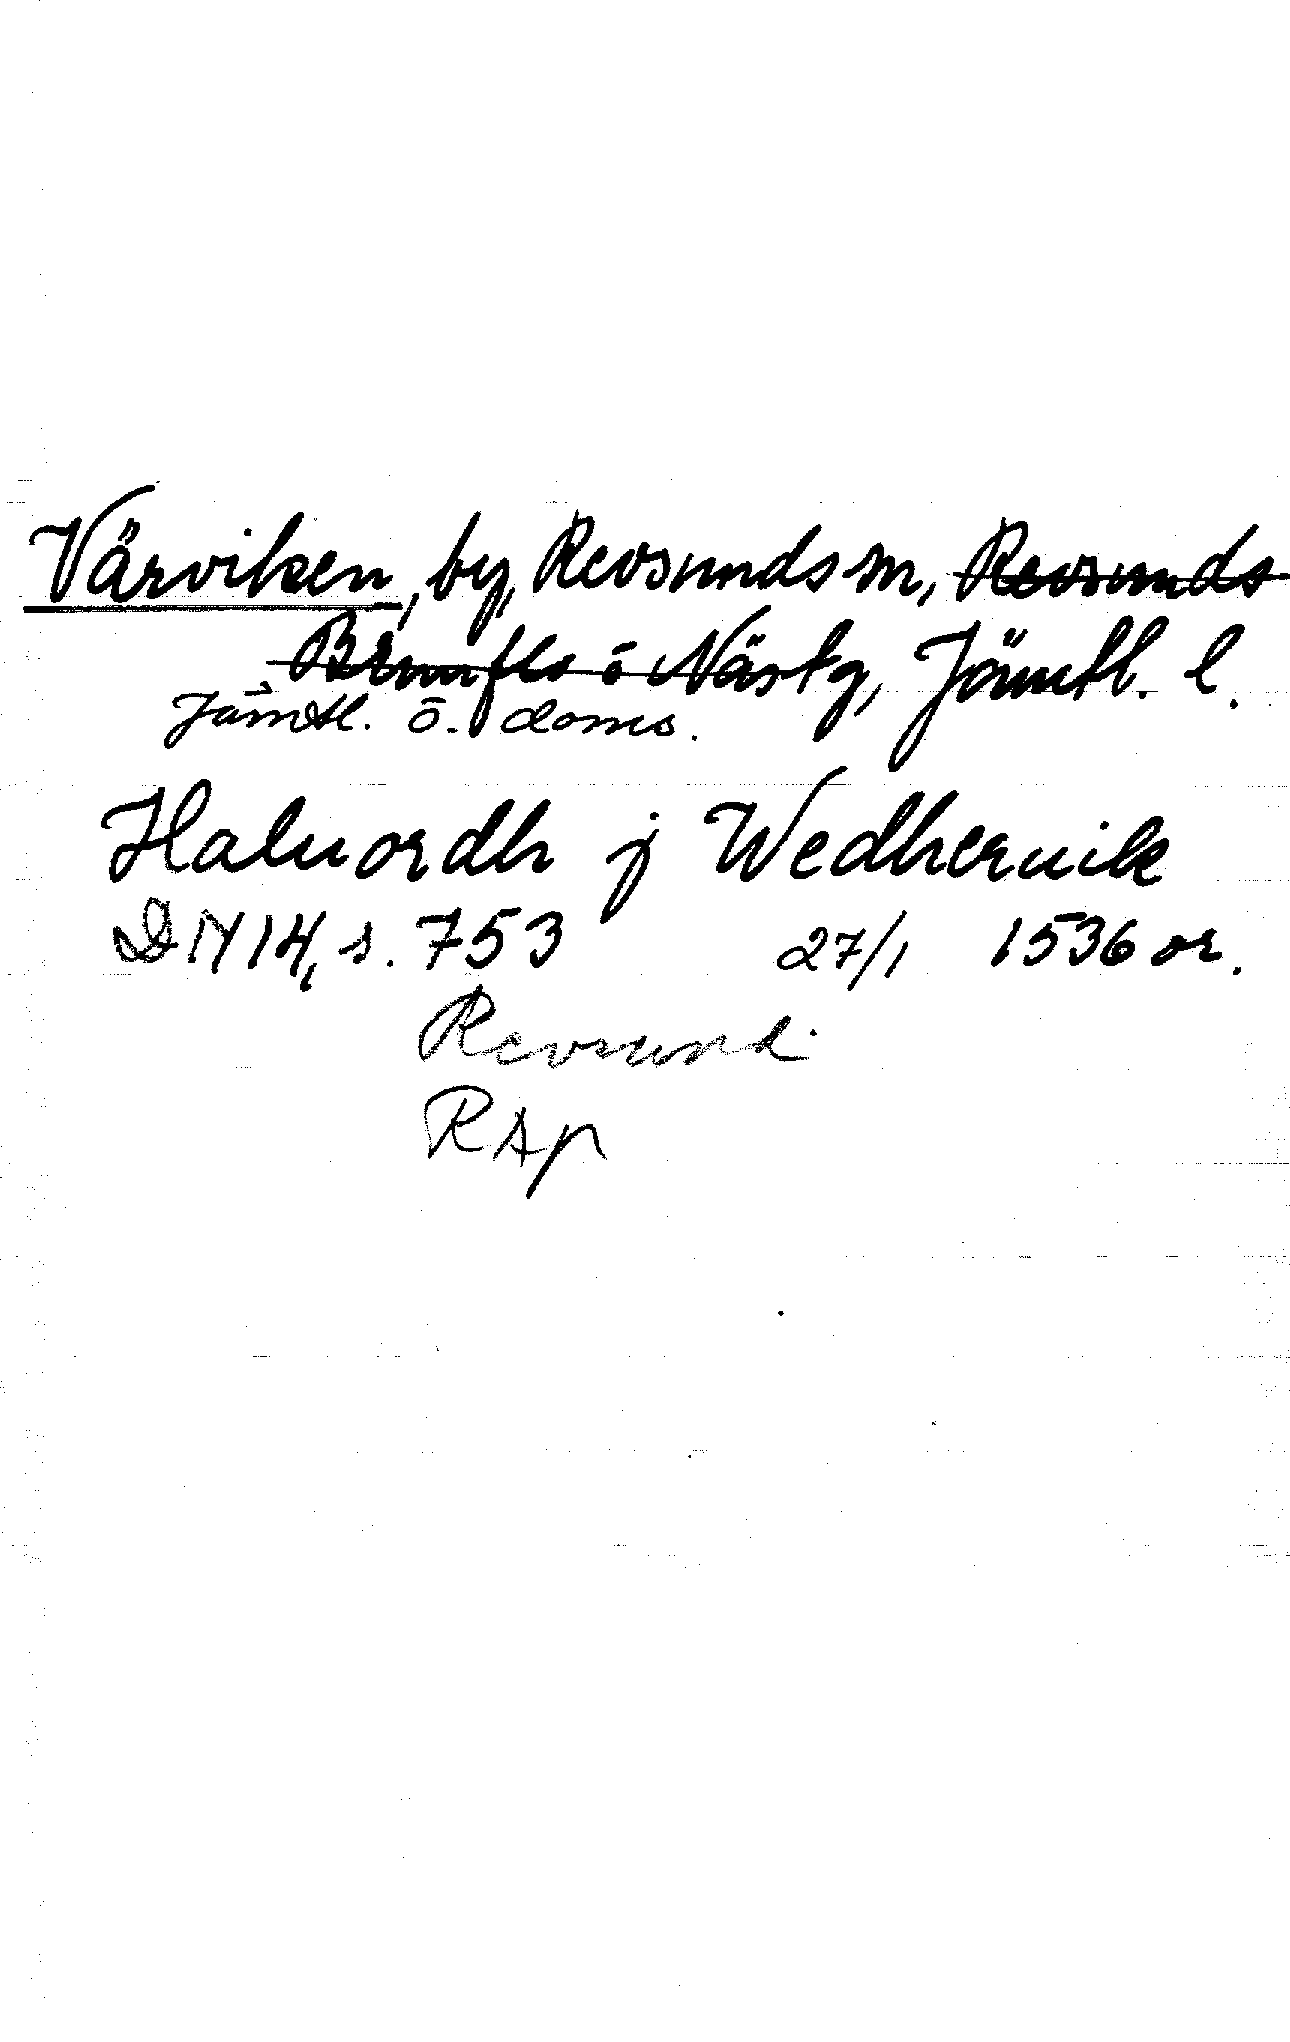 Värviken, by, Revsunds sn, Revsunds
Brunflo o Näs tg, Jämtl. l.
Jämtl. ö. doms.
Haluordh j Wedheruik
DN 14, s. 753 27/1 1536 or.
Revsund
RAp